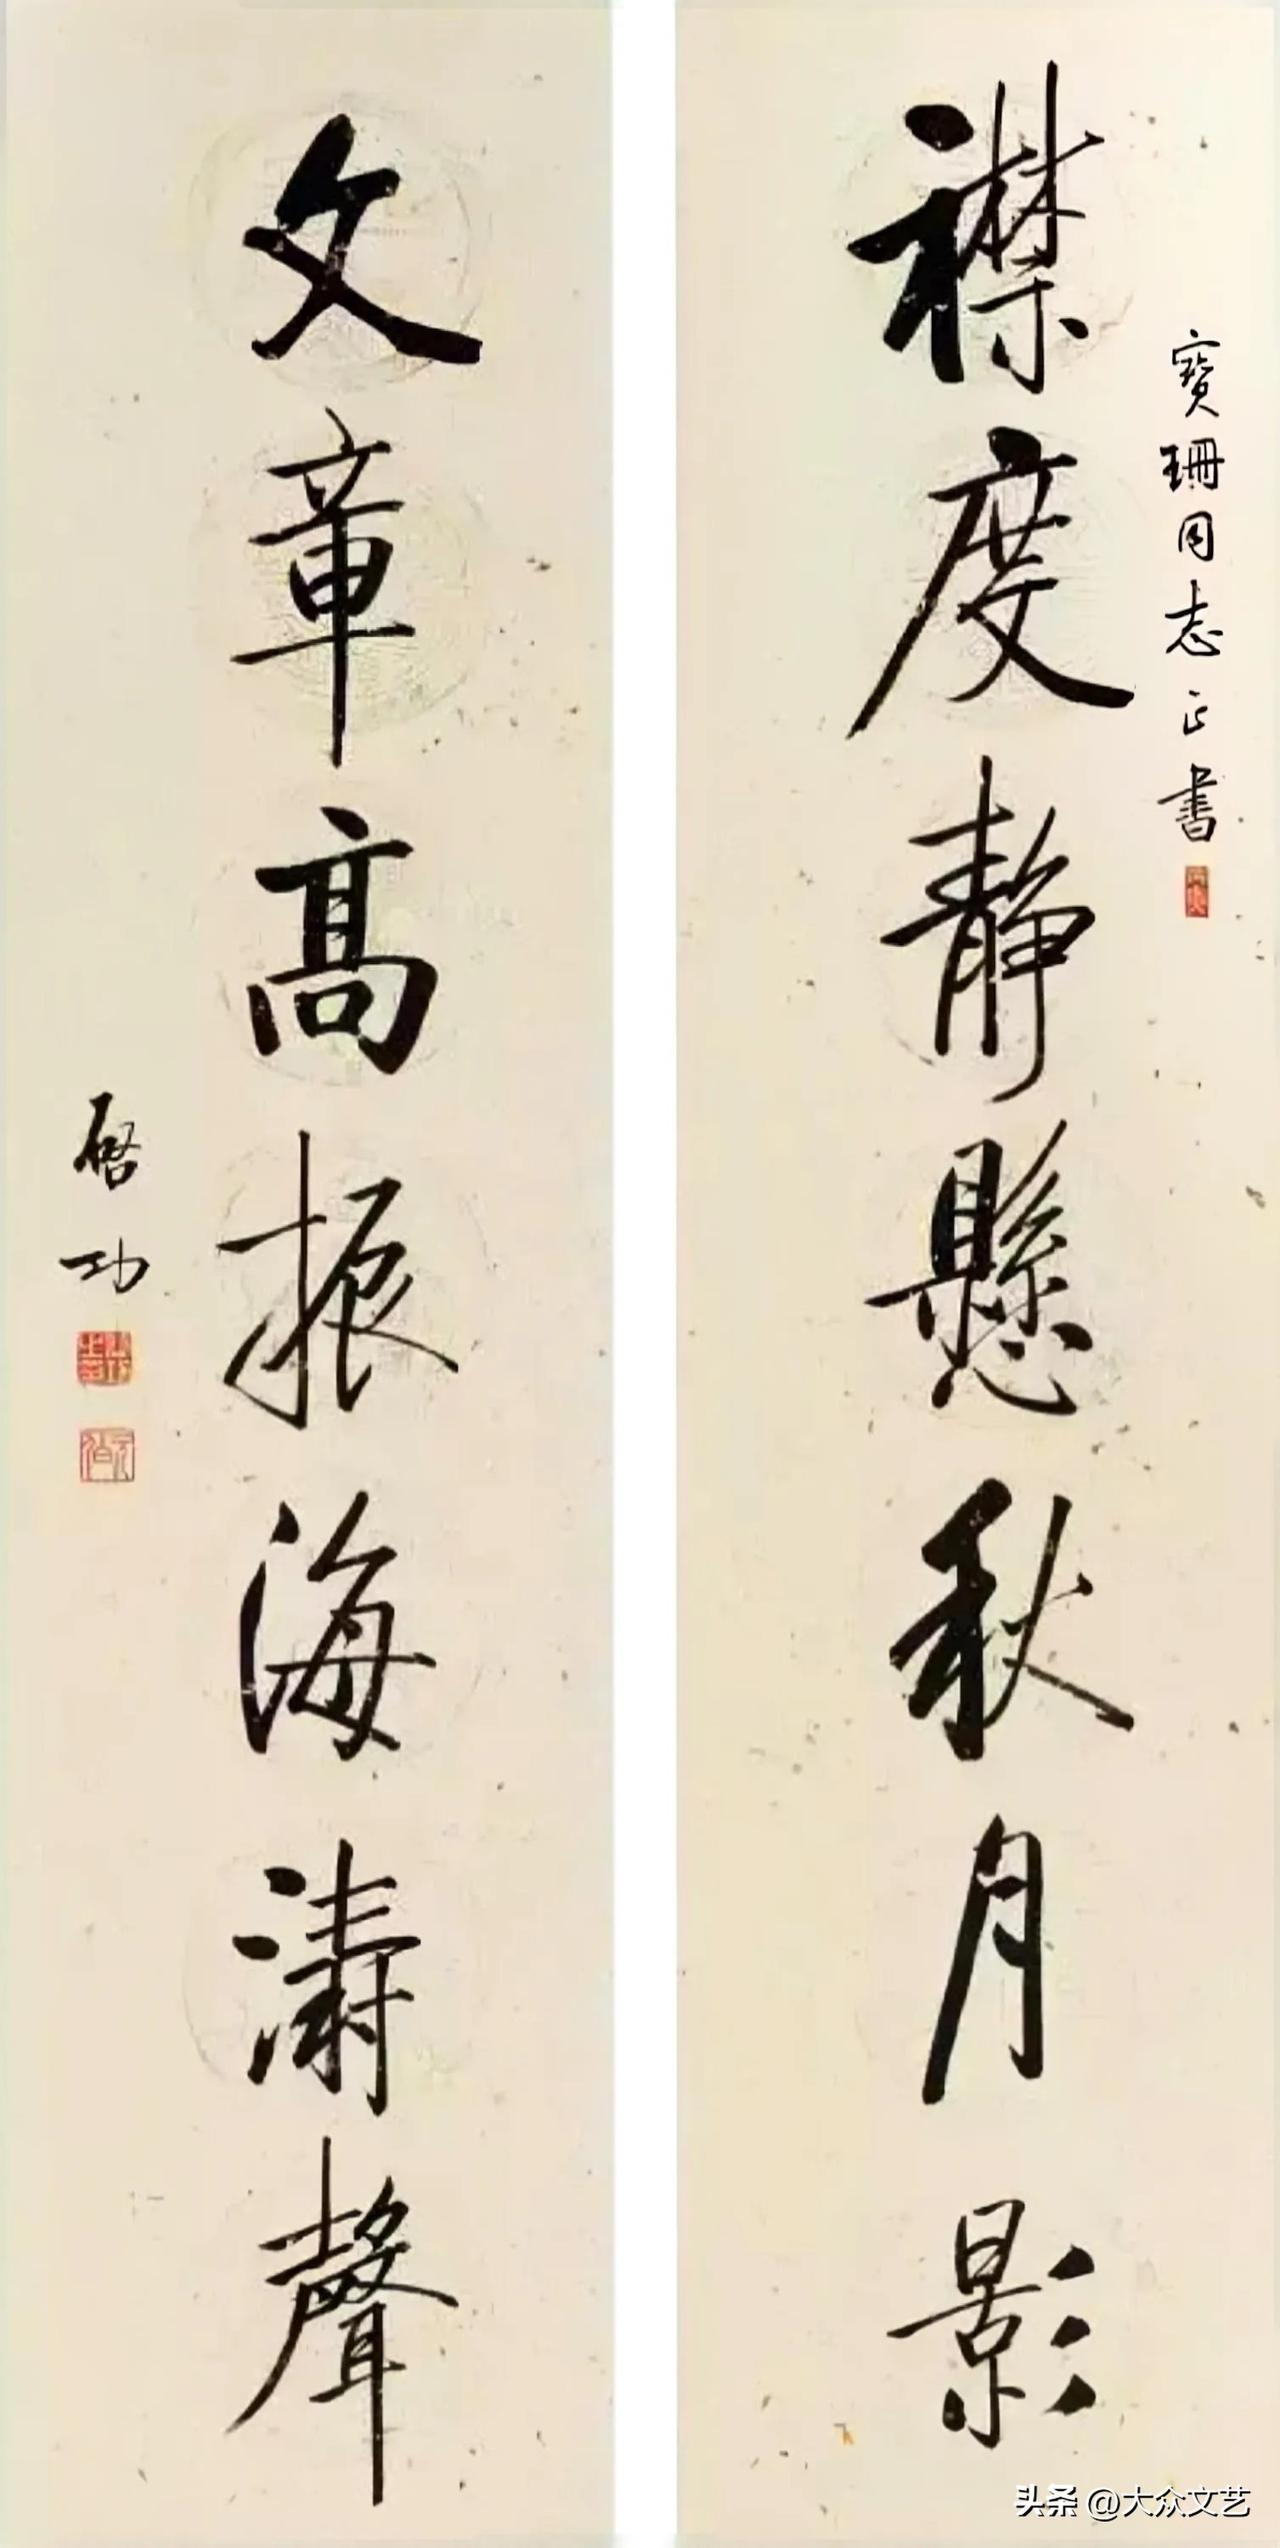 寶珊同志正書
襟度靜懸秋月影
文章高振海濤聲
啓功
头条 @大众文艺